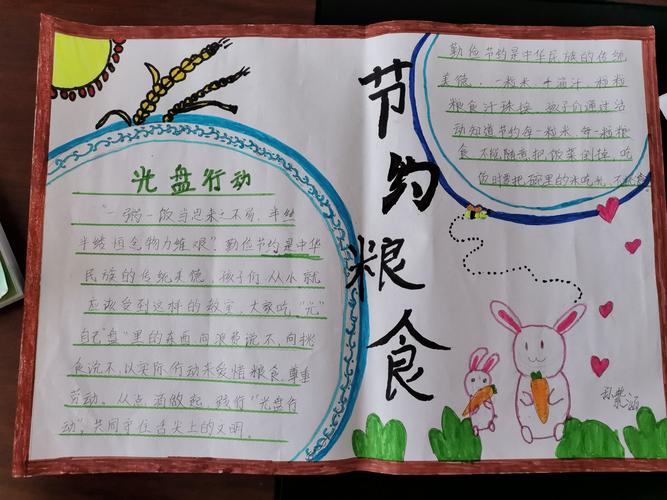 光盘行动
"一粥一饭当思来之不易,半丝
半缕恒念物力维艰"勤俭节约是中华
民族的传统美德,孩子们从小就
应该受到这样的教室,大家吃"光"
自己"盘"里的东西,向浪费说不,向挑
食说不,以实际行动来爱惜粮食,尊重
劳动。从点滴做起,践行"光盘行
动",共同守住舌尖上的文明。
节约粮食
勤俭节约是中华民族的传统
美德,一粒米 千滴汗,粒粒
粮食汗珠换,孩子们通过活
动知道节约每一粒米,每一粒粮
食 不能随意把饭菜倒掉,吃
饭时要把碗里的米吃光,不